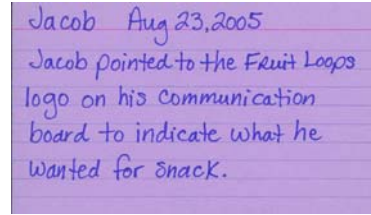 Jacob Aug 23,2005
Jacob pointed to the Fruit Loops
logo on his communication
board to indicate what he
wanted for snack.